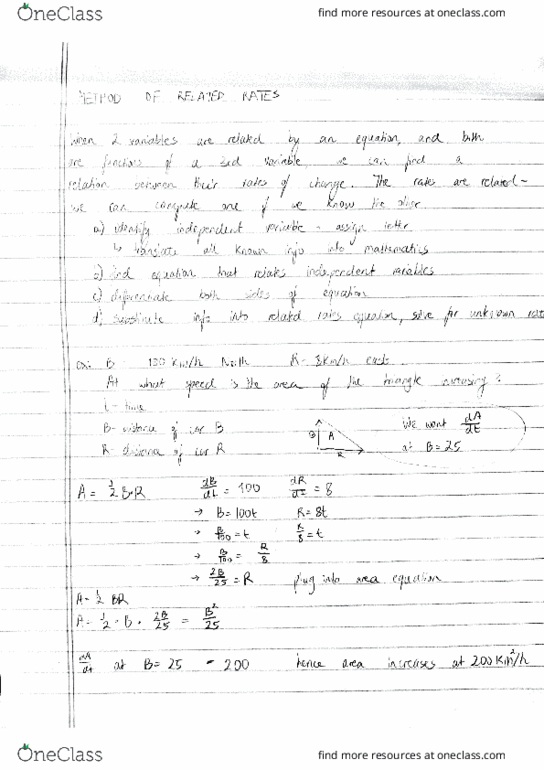 OneClass
find more resources at oneclass.com
METHOD OF RELATED RATES
When 2 variables are related by an equation, and both
are functions of a 3rd variable, we can find a
relation between their rates of change. The rates are related -
we can compute one if we know the other
a) identify independent variable - assign letter
↳ translate all known info into mathematics
b) find equation that relates independent variables
c) differentiate both sides of equation
d) substitute info into related rates equation, solve for unknown rate
ex: B 100 km/h North R - 8km/h east
At what speed is the area of the triangle increasing?
t - time
B - distance of car B
R - distance of car R
B A R
We want dA/dt
at B = 25
A = 1/2 B·R dB/dt = 100 dR/dt = 8
→ B = 100t R = 8t
→ B/100 = t R/8 = t
→ B/100 = R/8
→ 2B/25 = R plug into area equation
A = 1/2 BR
A = 1/2 · B · 2B/25 = B²/25
dA/dt at B = 25 = 200 hence area increases at 200 km²/h
OneClass
find more resources at oneclass.com